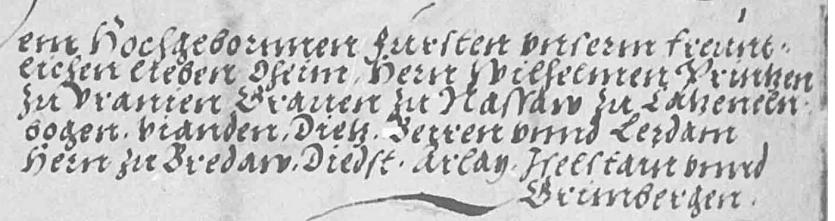 em Hochgebornnen Fursten vnserm freunt-
lichen lieben Oheim, Hern Wilhelmen Printzen
zu Vranien Grauen zu Nassaw zu Catzeneln-
bogen, vianden, Dietz, Berren vnnd Lerdam
Hern zu Bredaw, Diedst, Arlay, Iselstain vnnd
Grimbergen.